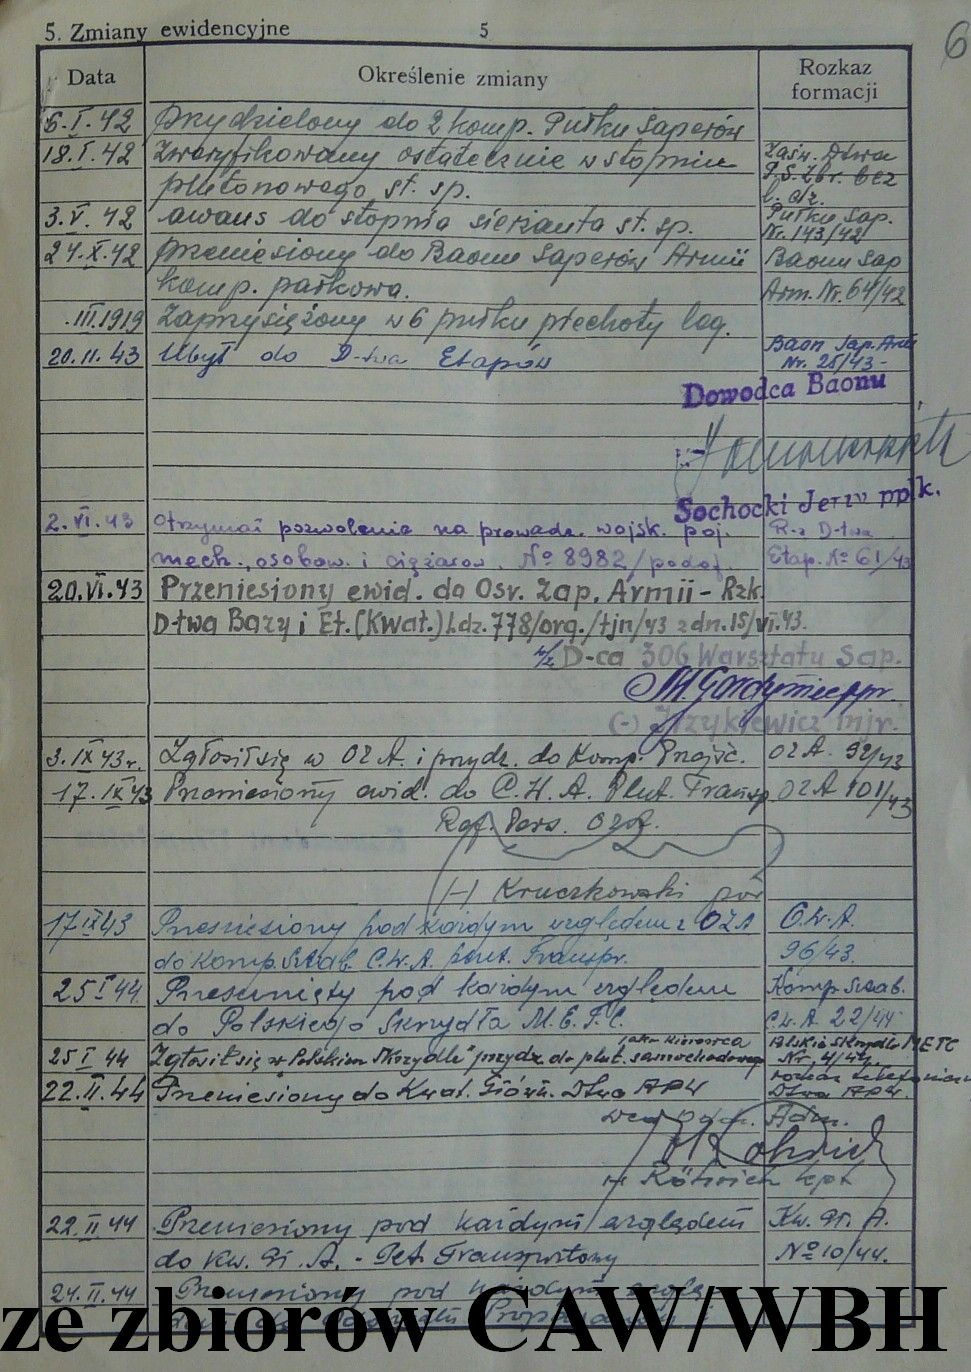 5. Zmiany ewidencyjne 5 6
Data Określenie zmiany Rozkaz formacji
6.I.42 przydzielony do 2 komp. Pułku Saperów
18.I.42 Zweryfikowany ostatecznie w stopniu Zaśw. D-twa
plutonowego st. sp. P.S. Zbr. bez l. dz.
3.V.42 awans do stopnia sierżanta st. sp. Pułku Sap. Nr. 143/42
24.X.42 przeniesiony do Baonu Saperów Armii Baonu Sap
komp. parkowa. Arm. Nr. 64/42
.III.1919 Zaprzysiężony w 6 pułku piechoty leg.
20.II.43 Ubył do D-twa Etapów Baon Sap. Armii Nr. 25/43-
Dowodca Baonu
Sochocki Jerzy ppłk.
2.VI.43 otrzymał pozwolenie na prowadz. wojsk. poj. R-z D-twa
mech., osobow. i ciężarow. No 8982/podof. Etap. No 61/43
20.VI.43 Przeniesiony ewid. do Osr. Zap. Armii - Rzk.
D-twa Bazy i Et. (Kwat.) l.dz. 778/org./tjn/43 z dn. 15/VI.43.
w/z D-ca 306 Warsztatu Sap.
M Gordyniec ppr.
(-) Jrzykiewicz mjr.
3.IX 43 r. Zgłosił się w OZA. i przydz. do Komp. Przejść. OZA. 92/43
17.IX 43 Przeniesiony ewid. do C.W.A. Plut. Transp. OZA 101/43
Ref. Pers. OZA.
(-) Kruczkowski por
17 IX 43 Przeniesiony pod każdym względem z OZA C.W.A.
do Komp. Sztab. C.W.A. plut. Transpr. 96/43.
25 I 44 Przesunięty pod każdym względem Komp. Sztab.
do Polskiego Skrzydła M.E.T.C. C.W.A. 22/44
jako kierowca Polskie Skrzydło METC
25 I 44 Zgłosił się w "Polskim Skrzydle" przydz. do plut. samochodowego Nr. 4/44
22.II.44 Przeniesiony do Kwat. Główn. D-twa APW D-twa APW.
Adm.
(-) Röhrich kpt
22.II 44 Przeniesiony pod każdym względem Kw. Gł. A.
do Kw. Gł. A. - Plut. Transportowy No 10/44.
24.II.44 Przeniesiony pod każdym wzglę-
ze zbiorów CAW/WBH